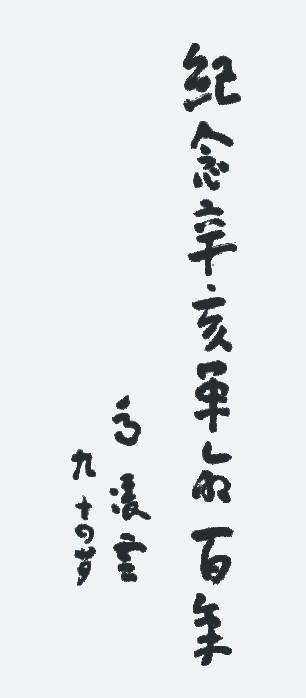 紀念辛亥革命百年
高凌雲
九十四岁